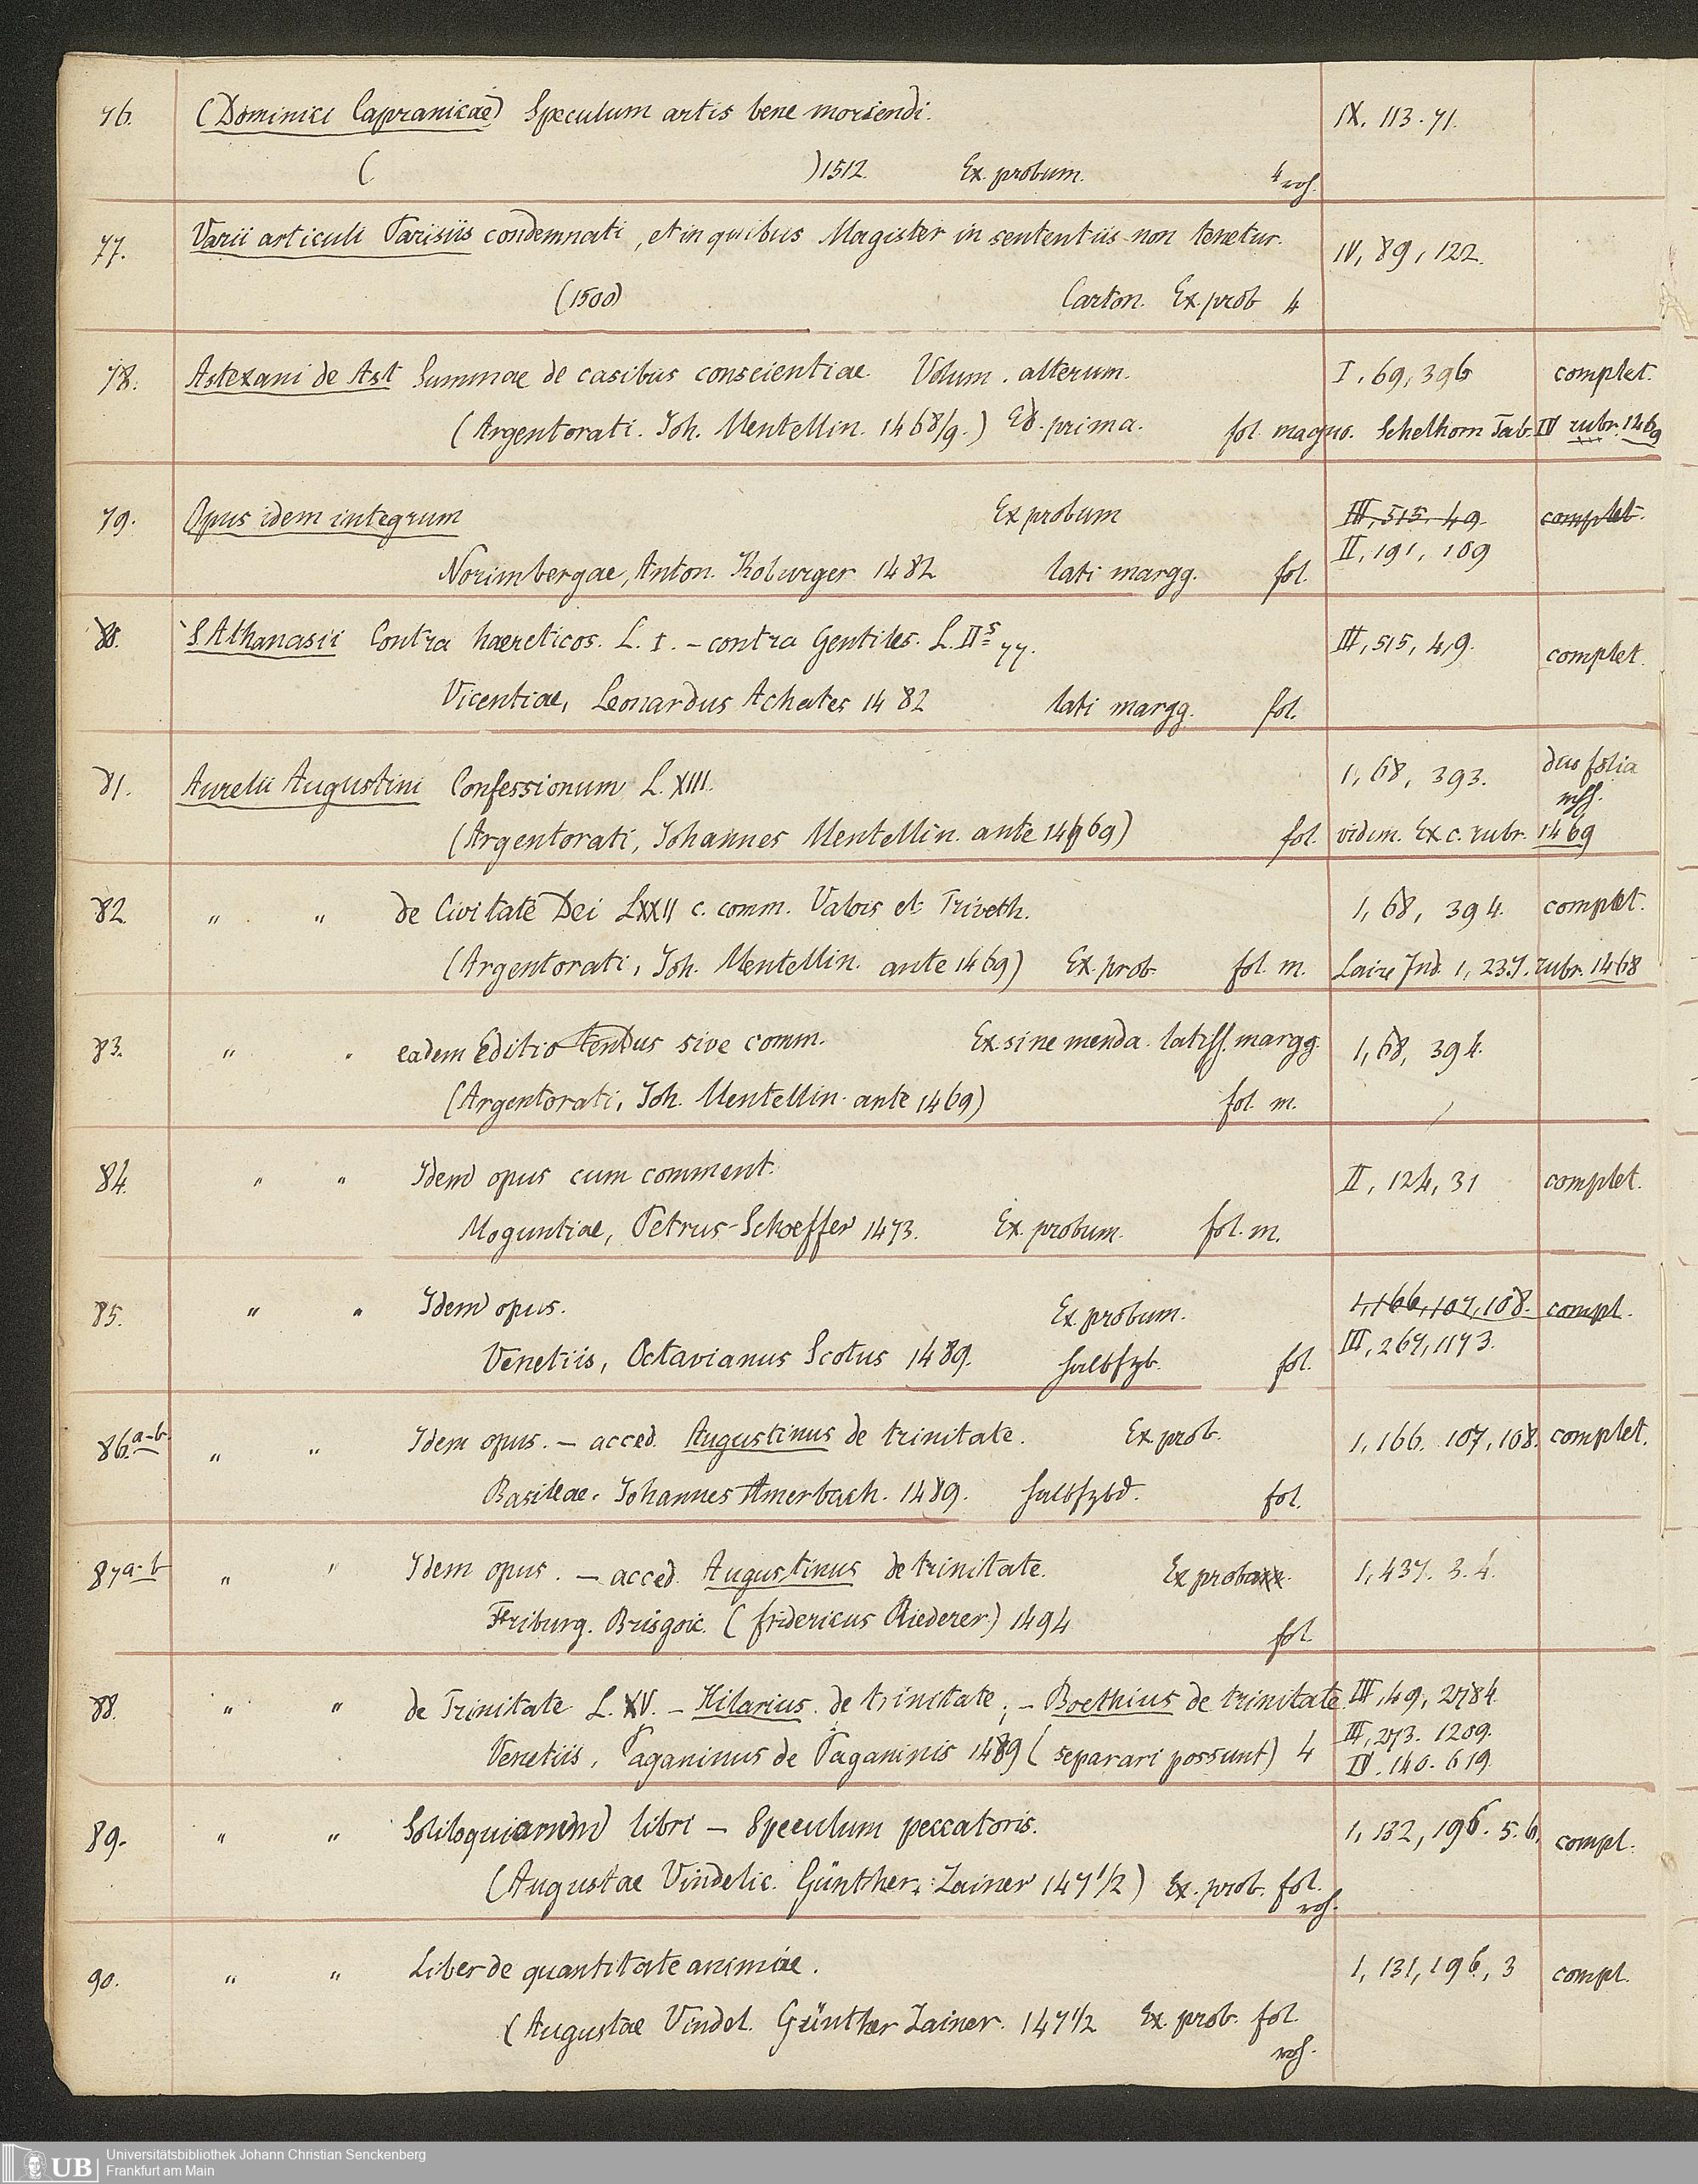 76. (Dominici Capranicae) Speculum artis bene moriendi. IX, 113. 71.
( )1512. Ex. probum. 4 roh.
77. Varii articuli Parisiis condemnati, et in quibus Magister in sententiis non tenetur. IV, 89, 122.
(1500) Carton. Ex. prob 4
78. Astexani de Ast Summae de casibus conscientiae. Volum. alterum. I, 69, 396 complet.
(Argentorati. Joh. Mentellin. 1468/9.) Ed. prima. fol. magno. Schelhorn Tab. IV rubr. 1469
79. Opus idem integrum Ex probum III, 515. 49. complet.
II, 191, 109
Norimbergae, Anton. Koburger 1482 lati margg. fol.
80. S. Athanasii Contra haereticos. L. I. – contra Gentiles. L. IIs 77. III, 515, 49. complet.
Vicentiae, Leonardus Achates 1482 lati margg. fol.
81. Aurelii Augustini Confessionum L. XIII. 1, 68, 393. duo folia
mss.
(Argentorati, Johannes Mentellin. ante 1469) fol. vidim. Ex c. rubr. 1469
82 " " de Civitate Dei LXXII c. comm. Valois et Triveth. 1, 68, 394. complet.
(Argentorati, Joh. Mentellin. ante 1469) Ex. prob. fol. m. Laire Ind. 1, 237. rubr. 1468
83. " " eadem Editio sive comm. Ex. sine menda. latiss. margg. 1, 68, 394.
(Argentorati, Joh. Mentellin. ante 1469) fol. m.
84. " " Idem opus cum comment. II, 124, 31 complet.
Moguntiae, Petrus Schoeffer 1473. Ex. probum. fol. m.
85. " " Idem opus. Ex. probum. 1, 166, 107, 108. compl.
III, 267, 1173.
Venetiis, Octavianus Scotus 1489. halbfzb. fol.
86. a-b. " " Idem opus. – acced. Augustinus de trinitate. Ex. prob. 1, 166. 107, 108. complet.
Basileae. Johannes Amerbach. 1489. halbfzbd. fol.
87 a-b " " Idem opus. – acced. Augustinus de trinitate. Ex prob 1, 437. 3. 4.
Friburg. Brisgoic. (fridericus Riederer) 1494 fol.
88. " " de Trinitate L. XV. – Hilarius. de trinitate; – Boethius de trinitate. III, 49, 2784.
III, 273. 1209.
Venetiis, Paganinus de Paganinis 1489 (separari possunt) 4 IV. 140. 619.
89. " " Soliloquiorum libri – Speculum peccatoris. 1, 132, 196. 5. 6. compl.
(Augustae Vindelic. Günther Zainer 1471/2) Ex. prob. fol.
roh.
90. " " Liber de quantitate animae. 1, 131, 196, 3 compl.
(Augustae Vindel. Günther Zainer. 1471/2 Ex. prob. fol.
roh.
UB Universitätsbibliothek Johann Christian Senckenberg
Frankfurt am Main